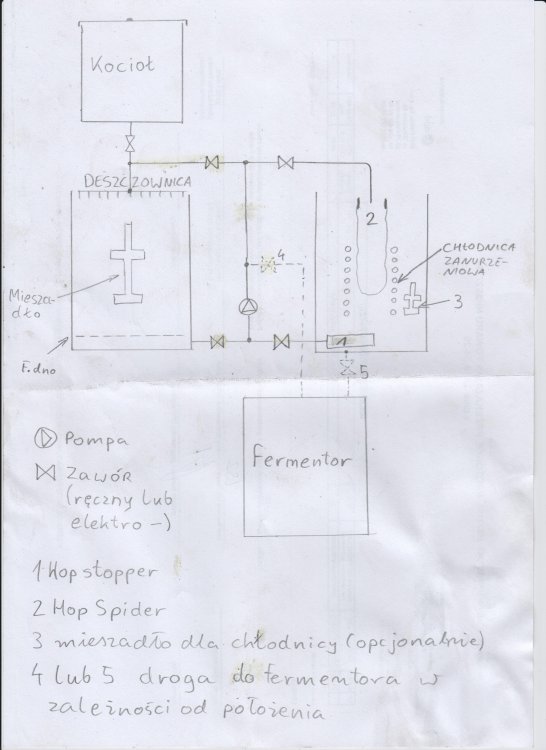 Kocioł
DESZCZOWNICA
2
4
CHŁODNICA
ZANURZE-
NIOWA
Miesza-
dło
3
1
F. dno
5
Fermentor
Pompa
Zawór
(ręczny lub
elektro-)
1 Hop stopper
2 Hop Spider
3 mieszadło dla chłodnicy (opcjonalnie)
4 lub 5 droga do fermentora w
zależności od położenia